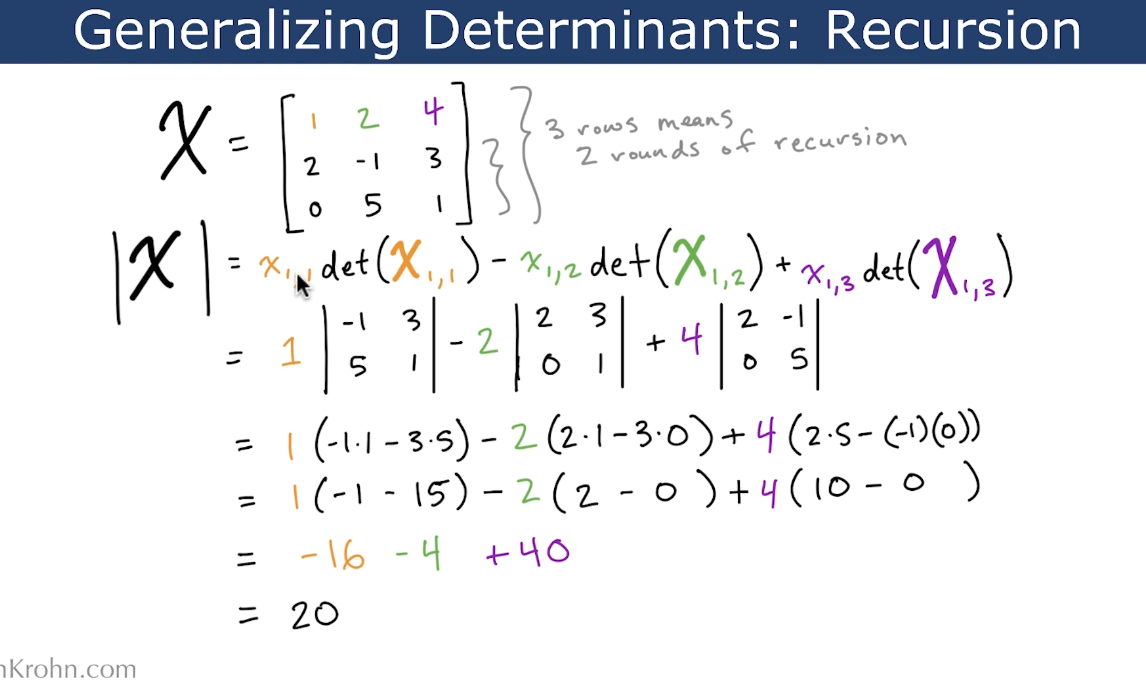 Generalizing Determinants: Recursion
X = [ 1 2 4
2 -1 3
0 5 1 ] } } 3 rows means
2 rounds of recursion
|X| = x₁,₁ det(X₁,₁) - x₁,₂ det(X₁,₂) + x₁,₃ det(X₁,₃)
= 1 | -1 3 | - 2 | 2 3 | + 4 | 2 -1 |
| 5 1 | | 0 1 | | 0 5 |
= 1 (-1·1 - 3·5) - 2 (2·1 - 3·0) + 4 (2·5 - (-1)(0))
= 1 (-1 - 15) - 2 (2 - 0) + 4 (10 - 0)
= -16 - 4 + 40
= 20
nKrohn.com